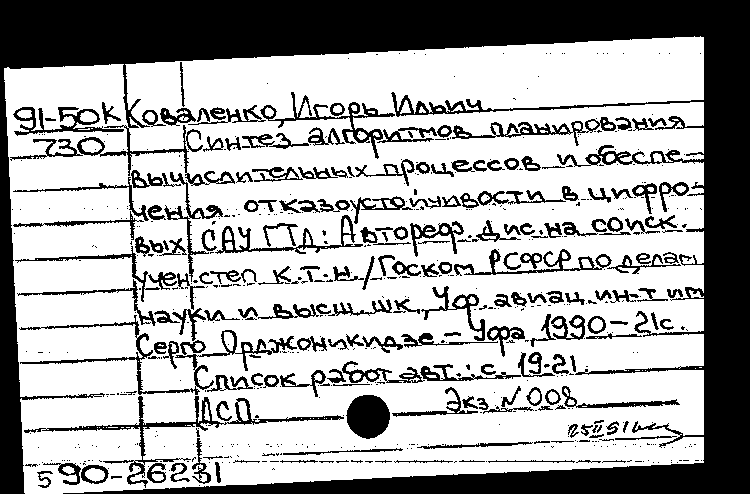 91-50К Коваленко, Игорь Ильич
730 Синтез алгоритмов планирования
вычислительных процессов и обеспе-
чения отказоустойчивости в цифро-
вых САУ ГТД: Автореф. дис. на соиск.
учен. степ к.т.н. / Госком РСФСР по делам
науки и высш. шк., Уф. авиац. ин-т им
Серго Орджоникидзе. - Уфа, 1990. - 21с.
Список работ авт.: с. 19-21.
ДСП. Экз. № 008
5 90-26231